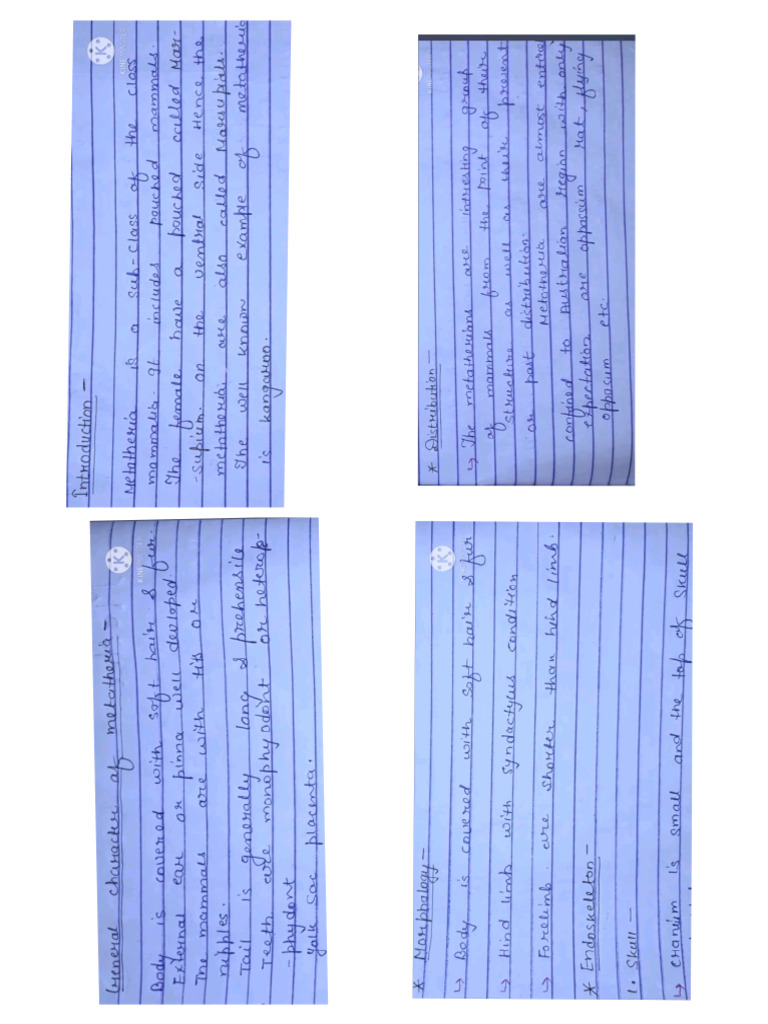 Introduction -
Metatheria is a sub-class of the class
mammalia. It includes pouched mammals.
The female have a pouched called Mar-
-supium on the ventral side Hence the
metatheria are also called Marsupials.
The well known example of metatheria
is kangaroo.
* Distribution -
↳ The metatherians are intresting group
of mammals from the point of their
structure as well as their present
or past distribution.
Metatheria are almost entire
confined to Australian region with only
expectation are oppossum rat, flying
opposum etc.
General character of metatheria -
Body is covered with soft hair & fur.
External ear or pinna well devloped
The mammals are with tits or
nipples.
Tail is generally long & prehensile
Teeth are monophyodont or heterop-
-phydont
Yolk sac placenta.
* Morphology -
↳ Body is covered with soft hair & fur
↳ Hind limb with syndactylus condition
↳ Forelimb are shorter than hind limb.
* Endoskeleton -
1. Skull -
↳ cranium is small and the top of skull